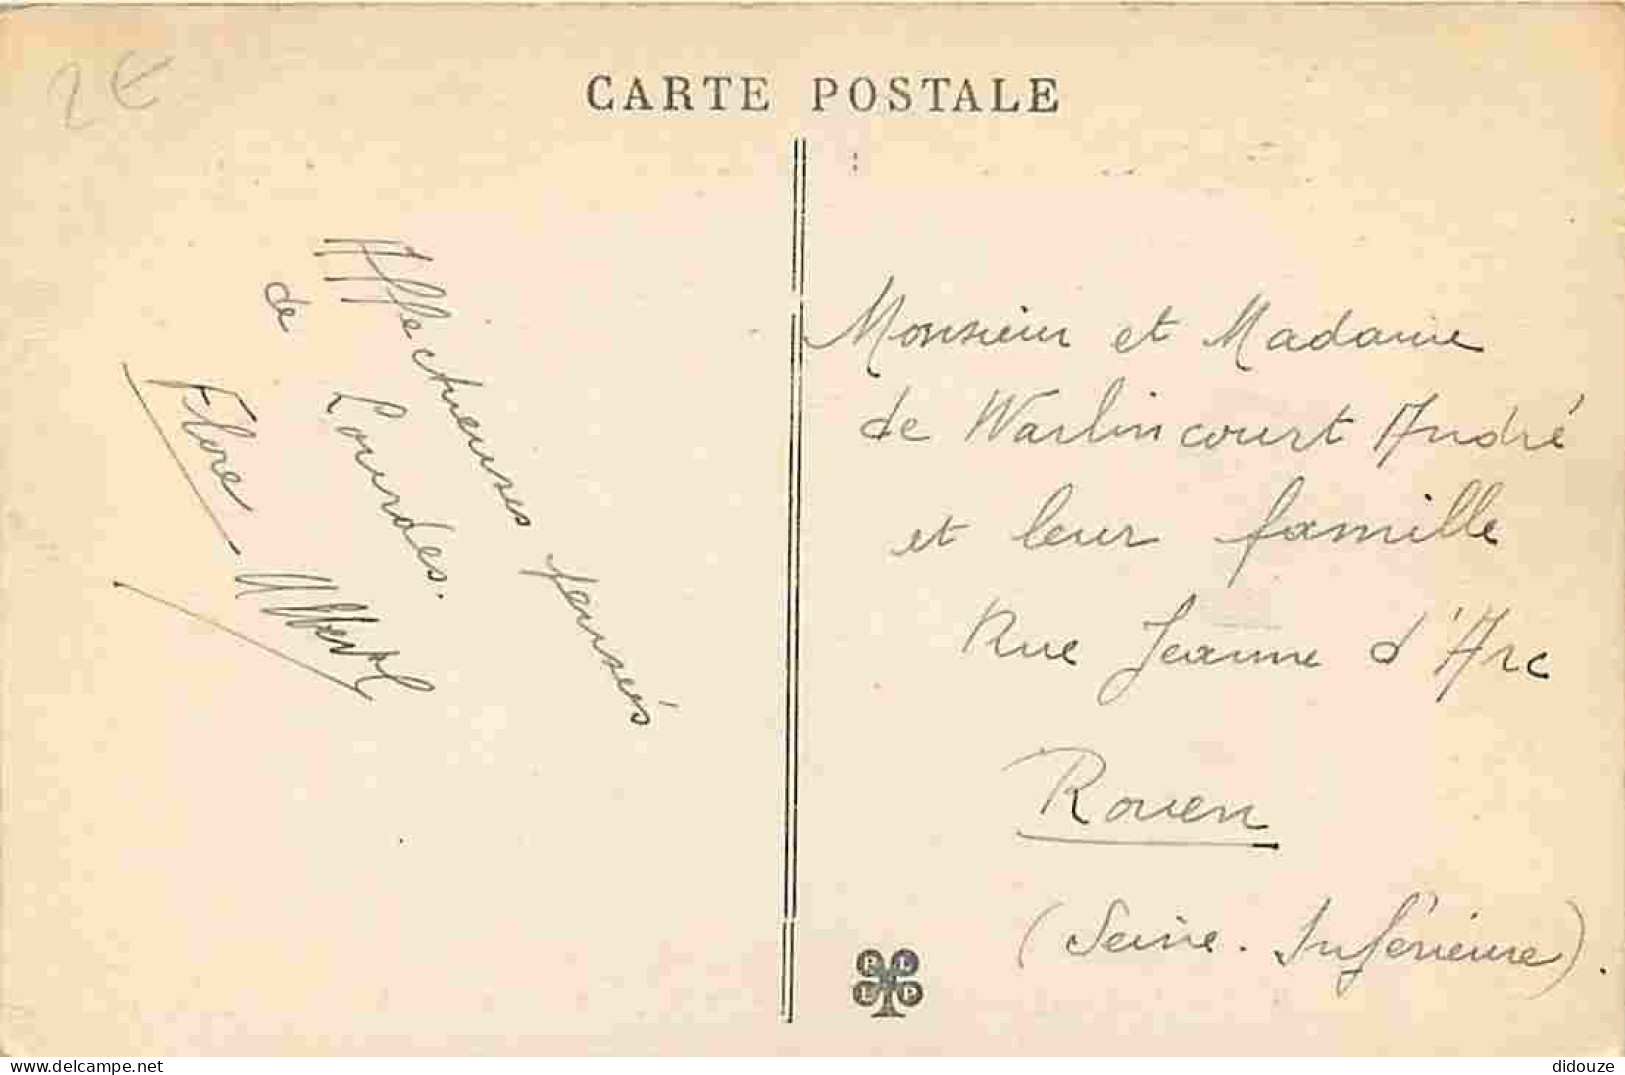 2€
CARTE POSTALE
Affectueuses penseés
de Lourdes.
Flore - Albert
Monsieur et Madame
de Warlincourt André
et leur famille
Rue Jeanne d'Arc
Rouen
(Seine-Inférieure).
P L
L P
didouze
www.delcampe.net